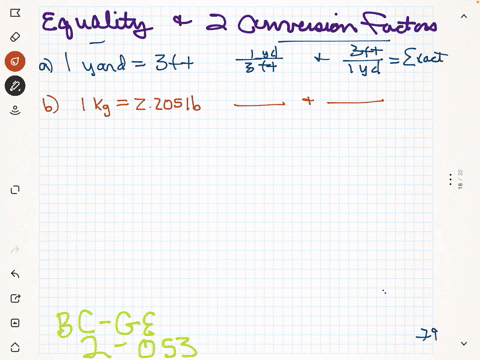 Equality & 2 Conversion Factors
a) 1 yard = 3ft 1 yd / 3 ft & 3ft / 1 yd = Exact
b) 1 kg = 2.205 lb ____ + ____
BC-GE
2-053
79
18 / 22